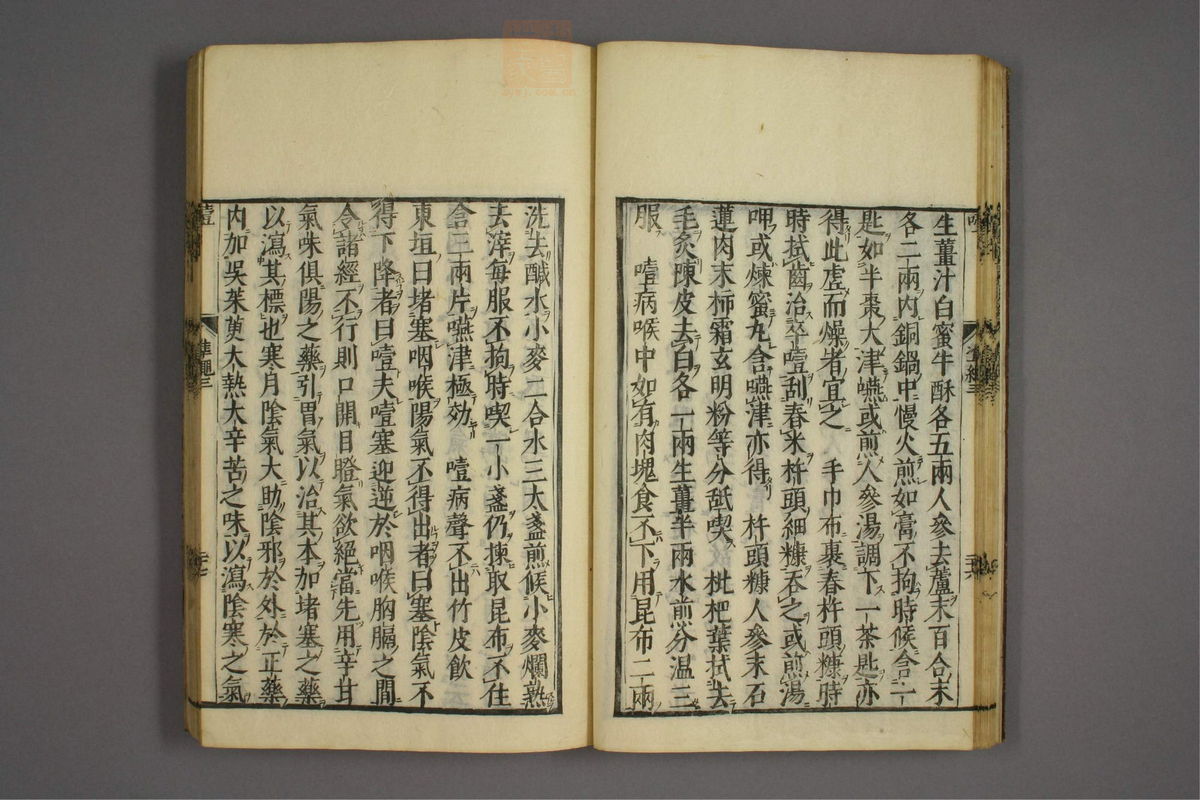 生薑汁白蜜牛酥各五兩人參去蘆末百合末
各二兩內銅鍋中慢火煎如膏不拘時候含一
匙如半棗大津嚥或煎人參湯調下一茶匙亦
得此虛而燥者宜之　手巾布裹舂杵頭糠時
時拭齒治卒噎刮舂米杵頭細糠吞之或煎湯
呷或煉蜜丸含嚥津亦得　杵頭糠人參末石
蓮肉末柿霜玄明粉等分舐喫　枇杷葉拭去
毛炙陳皮去白各一兩生薑半兩水煎分温三
服　噎病喉中如有肉塊食不下用昆布二兩
洗去鹹水小麥二合水三大盞煎候小麥爛熟
去滓每服不拘時喫一小盞仍揀取昆布不住
含三兩片嚥津極効　噎病聲不出竹皮飲
東垣曰堵塞咽喉陽氣不得出者曰塞陰氣不
得下降者曰噎夫噎塞迎逆於咽喉胸膈之間
令諸經不行則口開目瞪氣欲絕當先用辛甘
氣味俱陽之藥引胃氣以治其本加堵塞之藥
以瀉其標也寒月陰氣大助陰邪於外於正藥
內加吳茱萸大熱大辛苦之味以瀉陰寒之氣
噎
準繩三